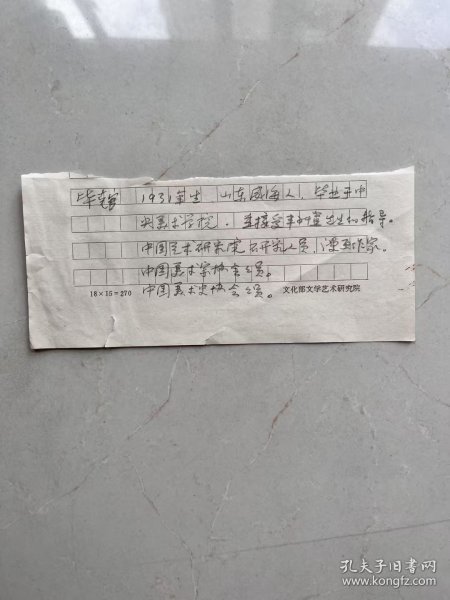 毕克官 1931年生,山东威海人,毕业于中
央美术学院,直接受丰子恺先生的指导。
中国艺术研究院研究人员,漫画作家。
中国美术家协会会员。
中国美术史协会会员。
18×15=270
文化部文学艺术研究院
孔夫子旧书网
www.kongfz.com